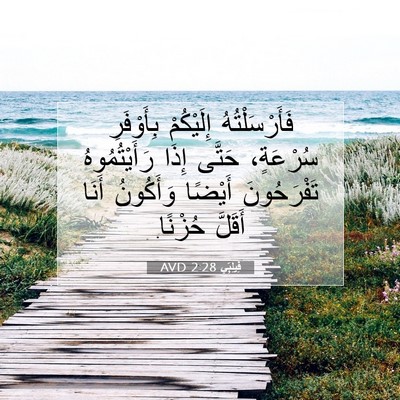 فَأَرْسَلْتُهُ إِلَيْكُمْ بِأَوْفَرِ
سُرْعَةٍ، حَتَّى إِذَا رَأَيْتُمُوهُ
تَفْرَحُونَ أَيْضًا وَأَكُونُ أَنَا
أَقَلَّ حُزْنًا.
فِيلِبِّي 2:28 AVD